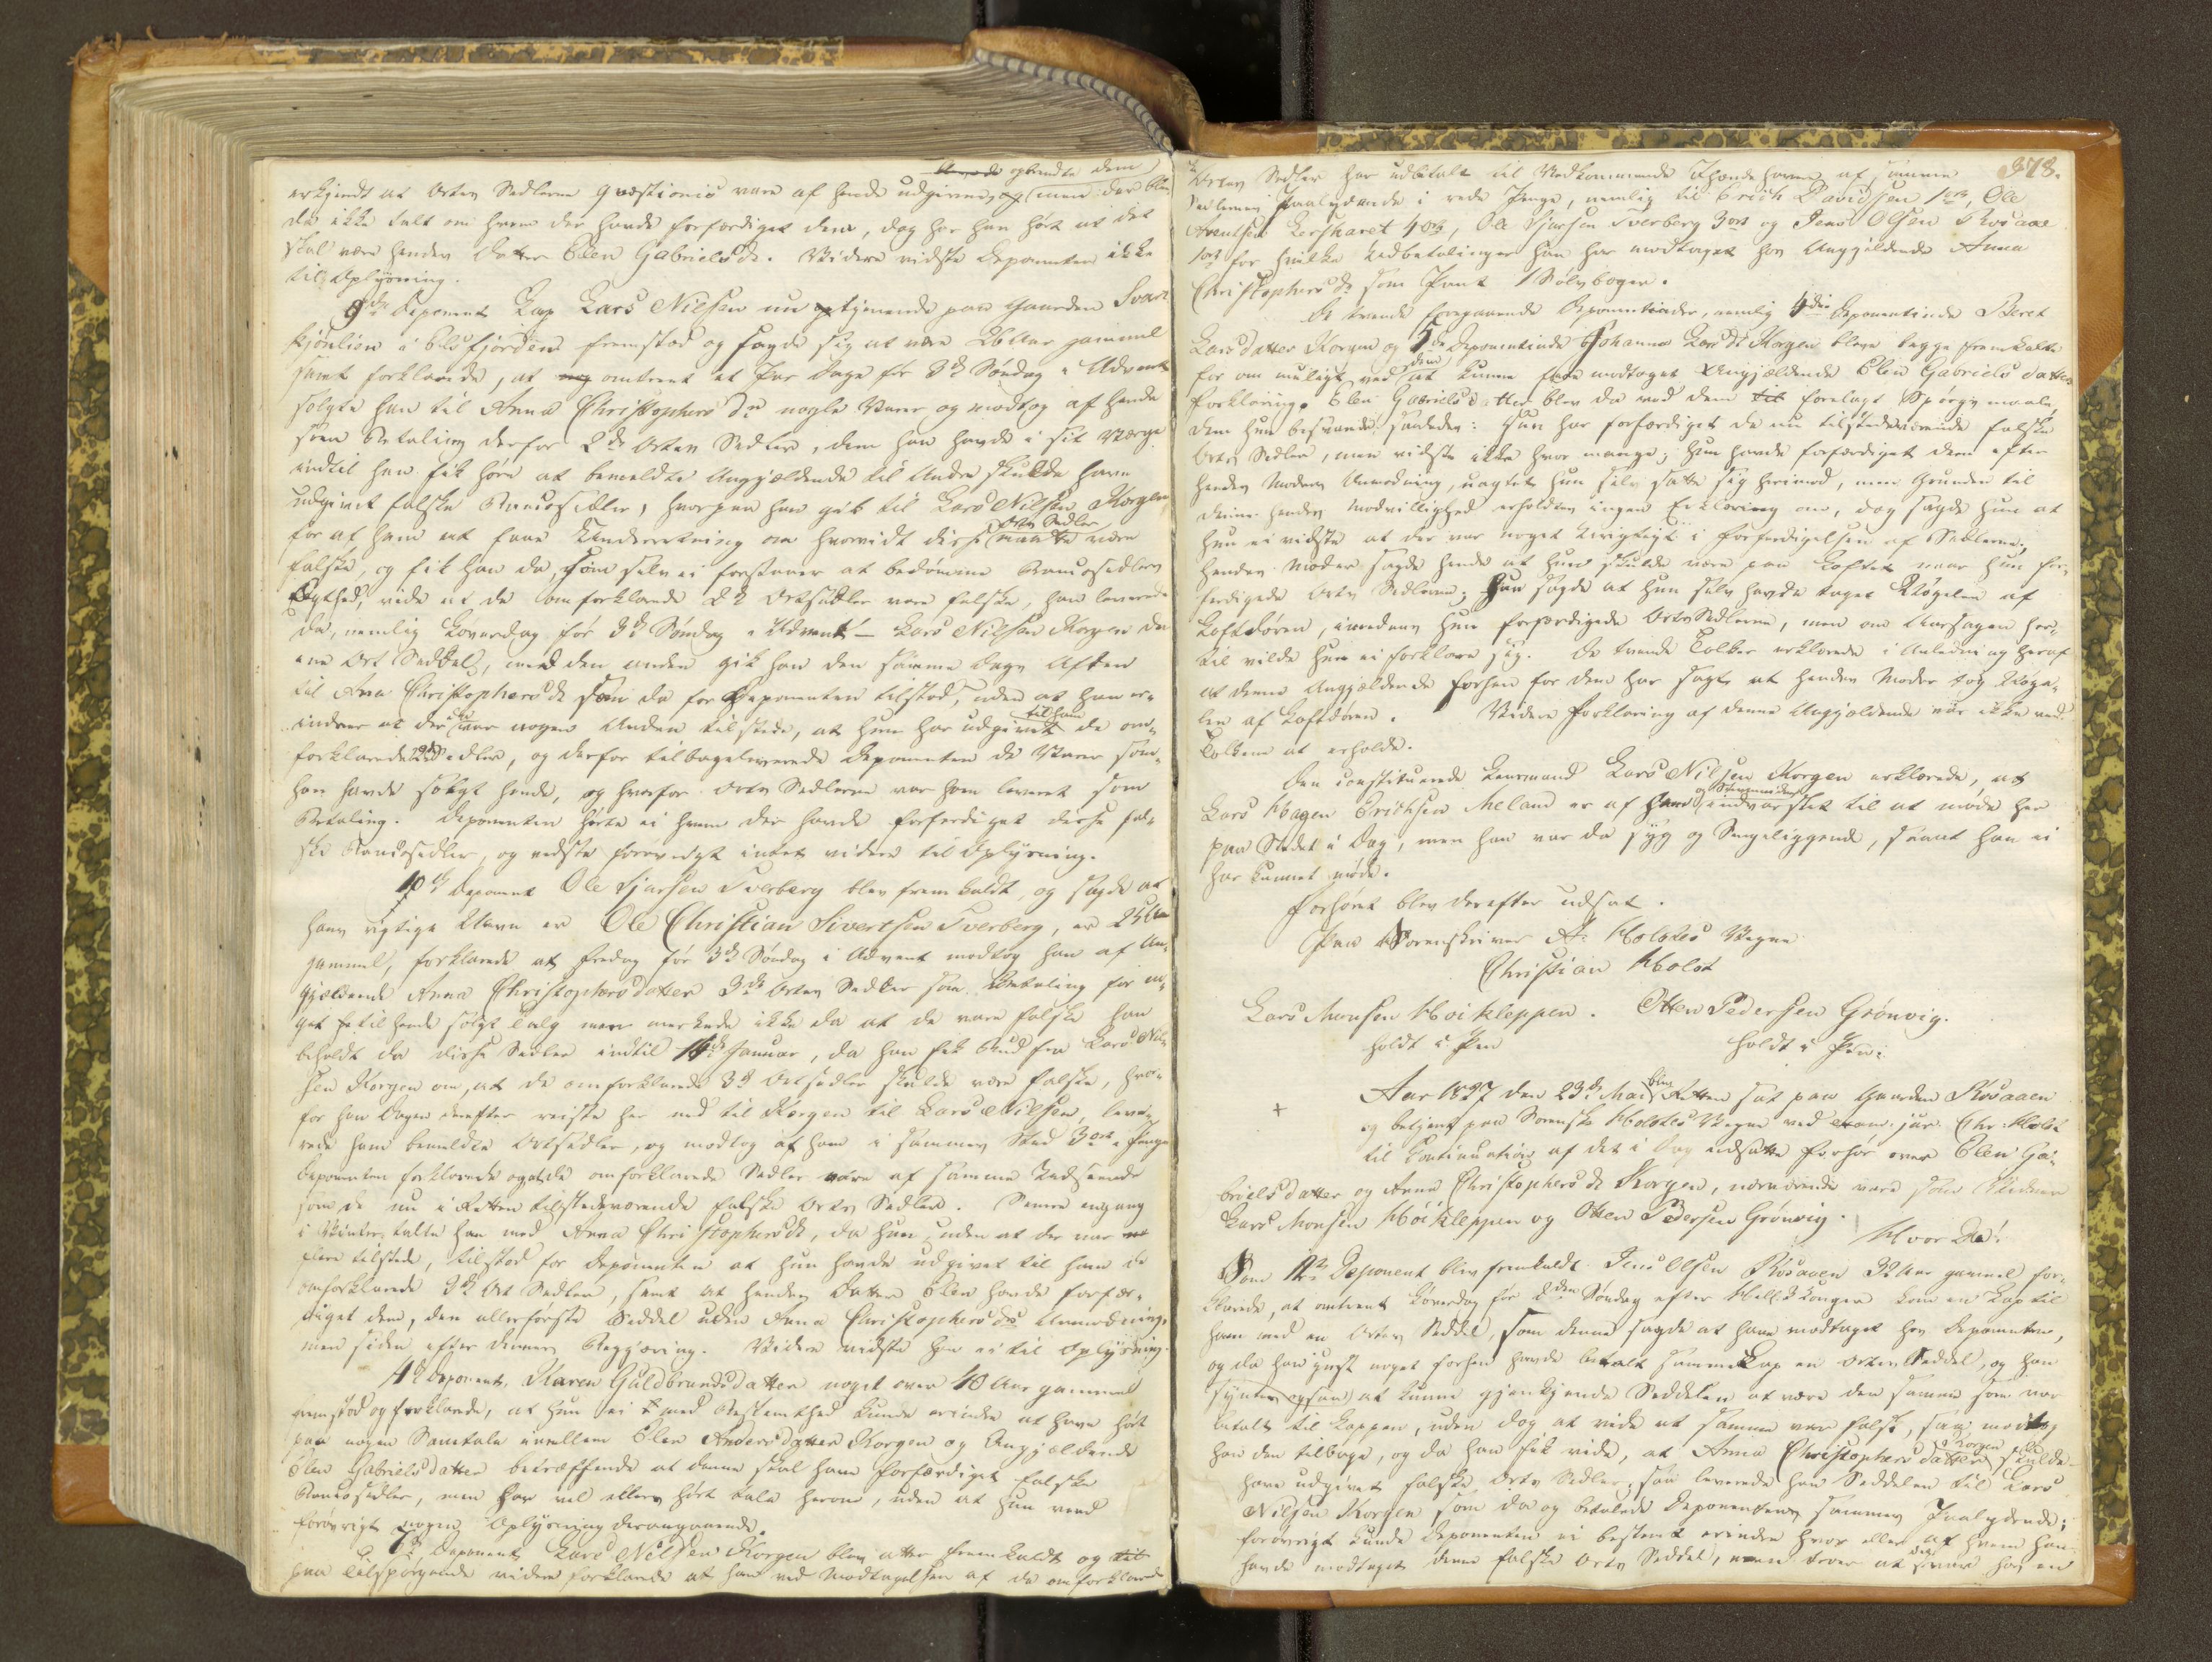 opkrævede dem
erkjendt at Orts Sedlerne qvæstionis vare af hende udgivne, men der blev
da ikke talt om hvem der havde forfærdiget dem, dog har han hørt at det
skal være hendes Datter Elen Gabrielsdr. Videre vidste Deponenten ikke
til Oplysning.
9de Deponent Lap Lars Nielsen nu tjenende paa Gaarden Svart
kjønlien i Elsfjorden fremstod og sagde sig at være 26 Aar gammel
samt forklarede, at omtrent et Par Dage før 3de Søndag i Advent
solgte han til Anna Christophersdr nogle Varer og modtog af hende
som Betaling derfor 2de Orten Sedler, dem han havde i sit Værge
indtil han fik høre at bemeldte Angjældende til Andre skulde have
udgivet falske Bancosedler, hvorpaa han gik til Lars Nilsen Korgen
for af ham at faae Underretning om hvorvidt disse Orts Sedler maatte være
falske, og fik han da, som selv ei forstaaer at bedømme Bancosedlers
Ægthed, vide at de omforklarede 2de Ortsedler vare falske, han leverede
da, nemlig Løverdag før 3de Søndag i Advent – Lars Nilsen Korgen den
ene Ort Seddel, med den anden gik han den samme Dags Aften
til Ana Christophersdr som da for Deponenten tilstod, uden at han er-
indrer at der var nogen Anden tilstede, at hun har udgivet til ham de om-
forklarede 2de Sedler, og derfor tilbageleverede Deponenten de Varer som
han havde solgt hende, og hvorfor Orts Sedlerne var ham leveret som
Betaling. Deponenten hørte ei hvem der havde forfærdiget disse fal-
ske Bancosedler, og vidste forøvrigt intet videre til Oplysning.
10de Deponent Ole Sjursen Tverberg blev fremkaldt, og sagde at
hans rigtige Navn er Ole Christian Sivertsen Tverberg, er 25 Aar
gammel, forklarede at Fredag før 3de Søndag i Advent modtog han af An-
gjældende Anna Christophersdatter 3de Orts Sedler som Betaling for no-
get til hende solgt Talg men mærkede ikke da at de vare falske han
beholdt da disse Sedler indtil 14de Januar, da han fik Bud fra Lars Nil-
sen Korgen om, at de omforklarede 3de Ortsedler skulde være falske, hvor-
for han Dagen derefter reiste her ned til Korgen til Lars Nilsen, leve-
rede ham bemeldte Ortsedler, og modtog af ham i sammes Sted 3 ort i Penge
Deponenten forklarede og at de omforklarede Sedler vare af samme Udseende
som de nu i Retten tilstedeværende falske Orts Sedler. Senere engang
i Vinter talte han med Anna Christophersdr, da hun, uden at der var
flere tilstede, tilstod for Deponenten at hun havde udgivet til ham de
omforklarede 3de Ort Sedler, samt at hendes Datter Elen havde forfær-
diget dem, den allerførste Seddel uden Anna Christophersdrs Anmodning,
men siden efter dennes Begjæring. Videre vidste han ei til Oplysning.
11de Deponent, Karen Guldbrandsdatter noget over 40 Aar gammel
fremstod og forklarede, at hun ei med Bestemthed kunde erindre at have hørt
paa nogen Samtale imellem Elen Andersdatter Korgen og Angjældende
Elen Gabrielsdatter betræffende at denne skal have forfærdiget falske
Bancosedler, men har vel ellers hørt tale herom, uden at hun veed
forøvrigt nogen Oplysning derangaaende.
7de Deponent Lars Nilsen Korgen blev atter fremkaldt og
paa Tilspørgende videre forklarede at han ved Modtagelsen af de omforklarede
378.
Orts Sedler har udbetalt til Vedkommende Ihændehavere af samme
Sedlernes Paalydende i rede Penge, nemlig til Erich Davidsen 1 ort, Ole
Arentsen Lershavet 4 ort, Ole Sjursen Tverberg 3 ort og Jens Olsen Røsaae
1 ort for hvilke Udbetalinger han har modtaget hos Angjældende Anna
Christophersdr som Pant 1 Sølvbæger.
De tvende foregaaende Deponentinder, nemlig 4de Deponentinde Beret
Larsdatter Korgen og 5te Deponentinde Johanna Larsdr Korgen bleve begge fremkaldte
for om muligt ved dem at kunne faae modtaget Angjældende Elen Gabrielsdatters
Forklaring. Elen Gabrielsdatter blev da ved dem forelagt Spørgsmaale,
dem hun besvarede saaledes: Hun har forfærdiget de nu tilstedeværende falske
Orts Sedler, men vidste ikke hvor mange; hun havde forfærdiget dem efter
hendes Moders Anmodning, uagtet hun selv satte sig herimod, men Grunden til
denne hendes Modvillighed erholdtes ingen Erklæring om, dog sagde hun at
hun ei vidste at der var noget urigtigt i Forfærdigelsen af Sedlerne;
hendes Moder sagde hende at hun skulde være paa Loftet naar hun for-
færdigede Orts Sedlerne; hun sagde at hun selv havde taget Nøgelen af
Loftdøren, imedens hun forfærdigede OrtsSedlerne, men om Aarsagen her-
til vilde hun ei forklare sig. De tvende Tolker erklærede i Anledning heraf
at denne Angjældende forhen for dem har sagt at hendes Moder tog Nøge-
len af Loftdøren. Videre Forklaring af denne Angjældende var ikke ved
Tolkene at erholde.
Den constituerede Lensmand Lars Nilsen Korgen erklærede, at
Lars Hagen Erichsen Meland er af ham indvarslet til at møde her
paa Stedet i Dag, men han var da syg og Sengeliggende, samt han ei
har kunnet møde.
Forhøret blev derefter udsat.
Paa Sorenskriver A: Holstes Vegne
Christian Holst
Lars Monsen Høikleppen. Otten Pedersen Grønvig.
holdt i Pen holdt i Pen.
Aar 1827 den 23de Mai blev Retten sat paa Gaarden Røsaaen
og betjent paa Sorenskr. Holstes Vegne ved exam. jur. Chr: Holst
til Continuation af det i Dag udsatte Forhør over Elen Ga-
brielsdatter og Anna Christophersdr Korgen, nærværende vare som Vidner
Lars Monsen Høikleppen og Otten Pedersen Grønvig.
Hvor Da!
Som 12te Deponent blev fremkaldt Jens Olsen Røsaaen 32 Aar gammel for-
klarede, at omtrent Løverdag før Søndag efter Hell. 3 Konger kom en Lap til
ham med en Orts Seddel, som denne sagde at have modtaget hos Deponenten,
og da han just noget forhen havde betalt samme Lap en Orts Seddel, og han
syntes ogsaa at kunne gjenkjende Seddelen at være den samme som var
betalt til Lappen, uden dog at vide at samme var falsk, saa modtog
han den tilbage, og da han fik vide, at Anna Christophersdatter Korgen skulde
have udgivet falske Orts Sedler, saa leverede han Seddelen til Lars
Nilsen Korgen som da og betalede Deponenten sammes Paalydende;
forøvrigt kunde Deponenten ei bestemt erindre hvor eller af hvem han
havde modtaget denne falske Orts Seddel, men troer at det var hos en